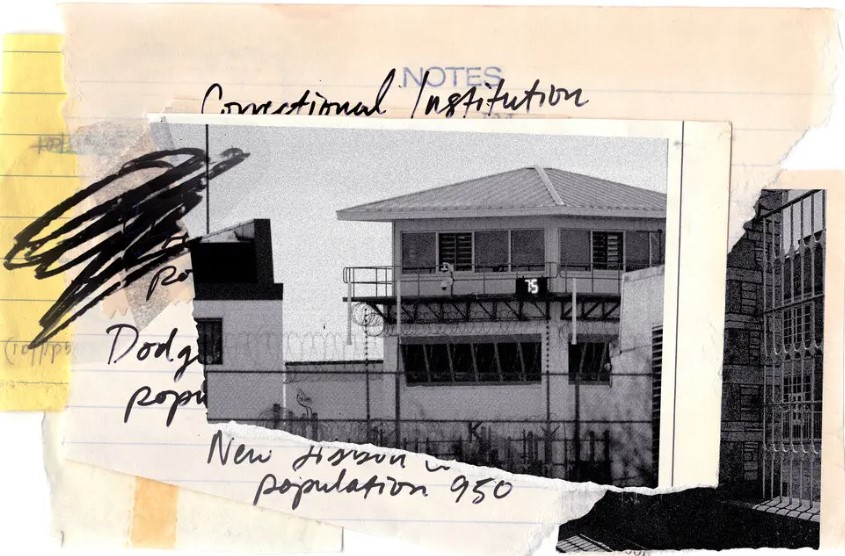 NOTES
Correctional Institution
15
po
Dodg
popu
K
New Lisbon
population 950